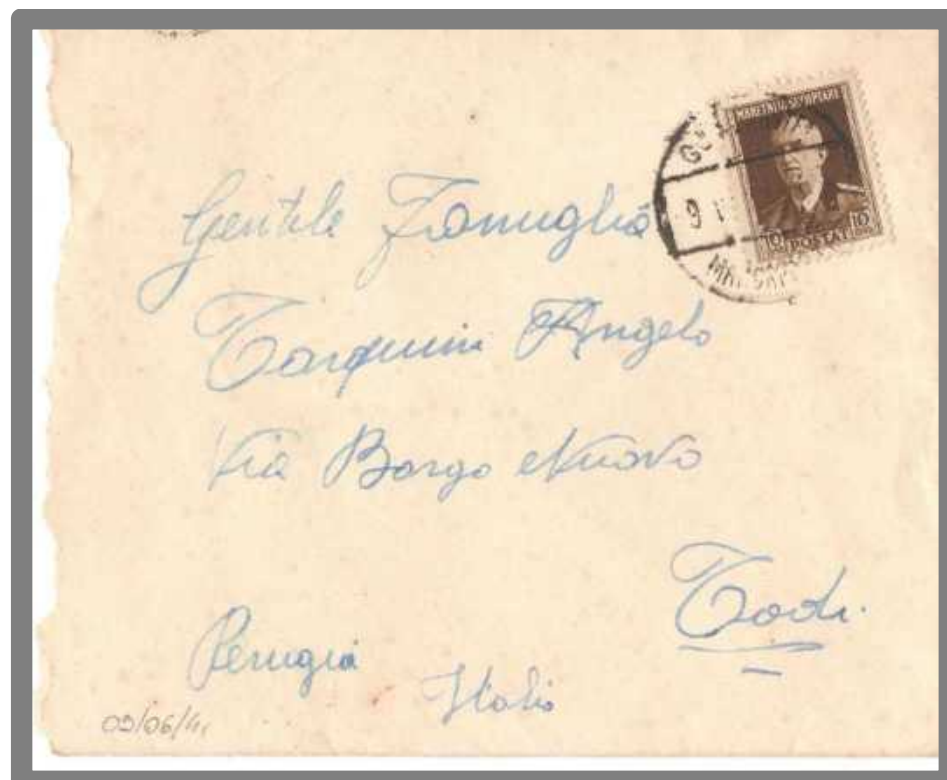 MBRETNIJA SHQIPTARE
10 POSTAT 10
9
Gentile Famiglia
Tarquini Angelo
Via Borgo Nuovo
Todi.
Perugia
Italia
09/06/41